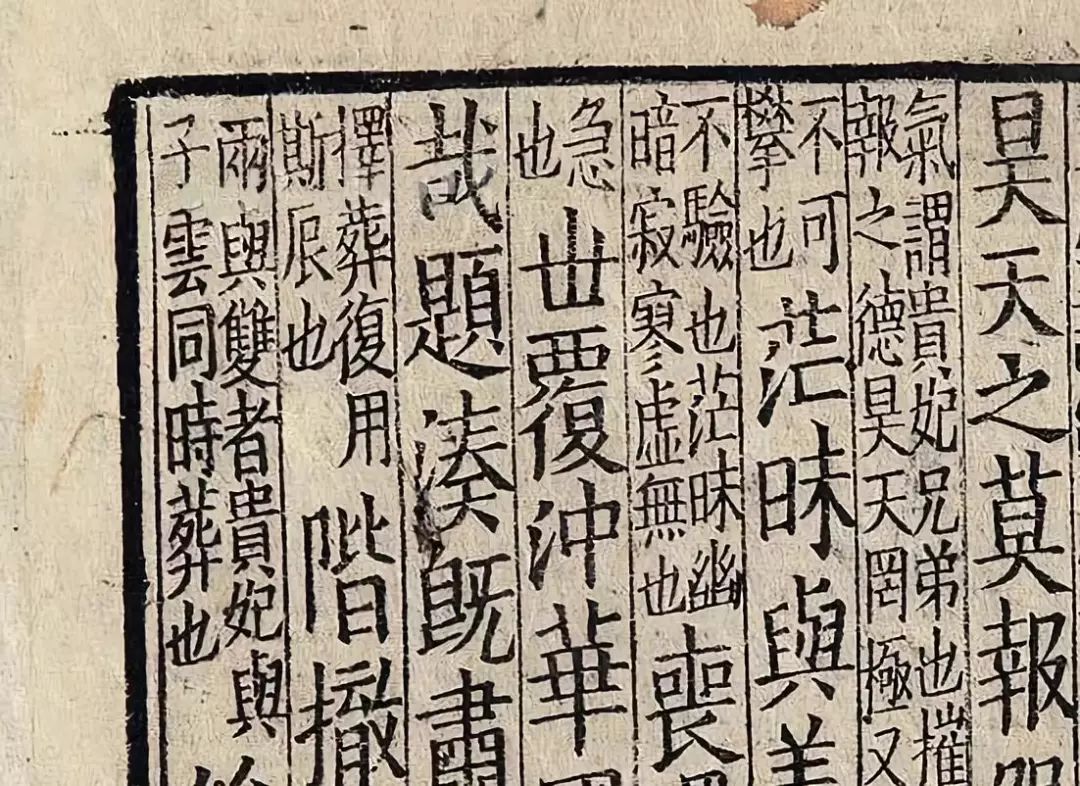 昊天之莫報
氣謂貴妃兄弟也摧
報之德昊天罔極又
不可
攀也
茫昧與
不驗也茫昧幽
暗寂寥虛無也
喪
急
也
丗覆沖華
哉題湊旣肅
擇葬復用
斯辰也
階撤
兩與雙者貴妃與
子雲同時葬也